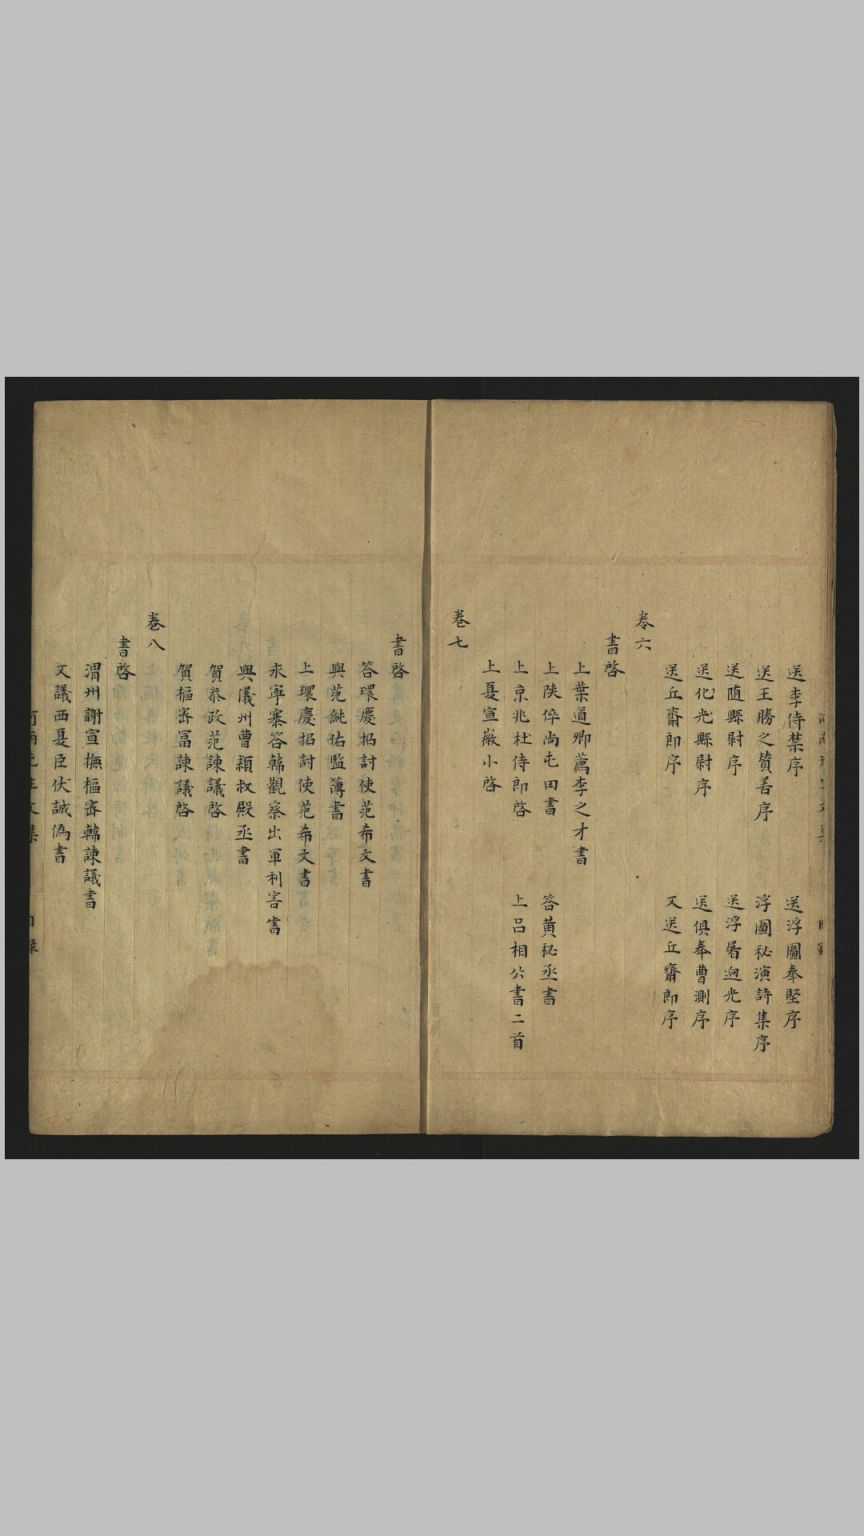 送李侍禁序　送浮圖奉堅序
送王勝之贊善序　浮圖秘演詩集序
送随縣尉序　送浮屠逈光序
送化光縣尉序　送供奉曹測序
送丘齋郎序　又送丘齋郎序
卷六
書啓
上葉道卿薦李之才書
上陝倅尚屯田書　答黄秘丞書
上京兆杜侍郎啓　上吕相公書二首
上夏宣嚴小啓
卷七
書啓
答環慶招討使范希文書
與范純佑監簿書
上環慶招討使范希文書
永寧寨答韓觀察出軍利害書
與儀州曹穎叔殿丞書
賀叅政范諫議啓
賀樞密富諫議啓
卷八
書啓
渭州謝宣撫樞密韓諫議書
又議西夏臣伏誠偽書